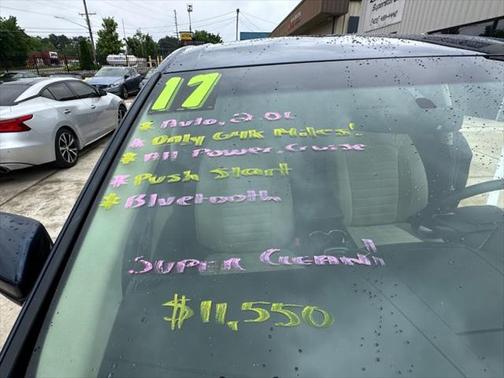 17
* Auto, 2.0L
* Only 64k Miles!
* All Power, Cruise
* Push Start
* Bluetooth
Super Clean!
$11,550